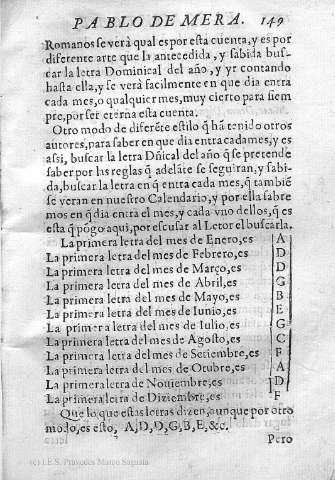 PABLO DE MERA. 149
Romanos se verà qual es por esta cuenta, y es por
diferente arte que la antecedida, y sabida bus-
car la letra Dominical del año, y yr contando
hasta ella, y se verà facilmente en que dia entra
cada mes, o qualquier mes, muy cierto para siem
pre, por ser eterna esta cuenta.
Otro modo de diferẽte estilo q̃ hã tenido otros
autores, para saber en que dia entra cada mes, y es
assi, buscar la letra Dñical del año q̃ se pretende
saber por las reglas q̃ adelãte se seguiran, y sabi-
da, buscar la letra en q̃ entra cada mes, q̃ tambiẽ
se veran en nuestro Calendario, y por ella sabre
mos en q̃ dia entra el mes, y cada vno dellos, q̃ es
esta q̃ põgo aqui, por escusar al Letor el buscarla.
La primera letra del mes de Enero, es A
La primera letra del mes de Febrero, es D
La primera letra del mes de Março, es D
La primera letra del mes de Abril, es G
La primera letra del mes de Mayo, es B
La primera letra del mes de Iunio, es E
La primera letra del mes de Iulio, es G
La primera letra del mes de Agosto, es C
La primera letra del mes de Setiembre, es F
La primera letra del mes de Otubre, es A
La primera letra de Nouiembre, es D
La primera letra de Diziembre, es F
Que lo que estas letras dizen, aunque por otro
modo, es esto, A, D, D, G, B, E, &c.
Pero
(c) I.E.S. Práxedes Mateo Sagasta